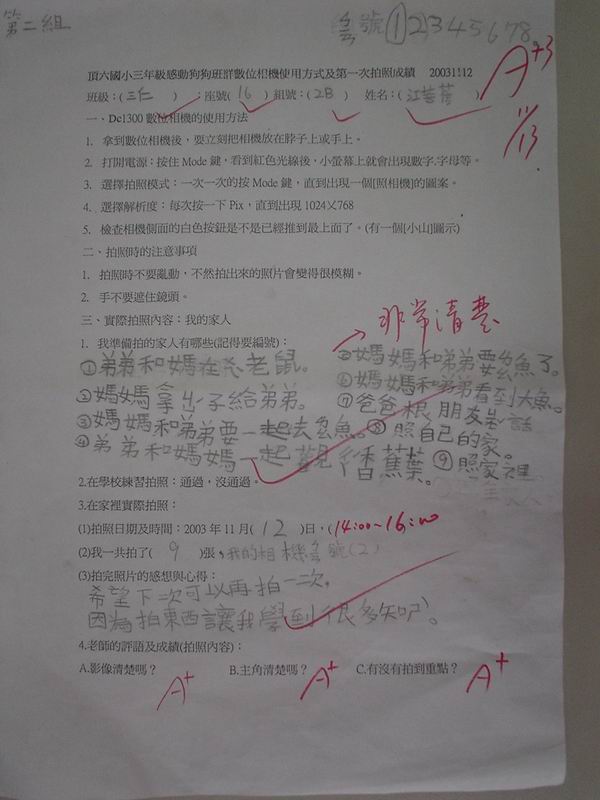 第二組
編號①2345678
頂六國小三年級感動狗狗班群數位相機使用方式及第一次拍照成績 20031112
A+3
11/13
班級:(三仁 ):座號(16 )組號:(2B )
姓名:(
一、Dc1300 數位相機的使用方法
1. 拿到數位相機後,要立刻把相機放在脖子上或手上。
2. 打開電源:按住 Mode 鍵,看到紅色光線後,小螢幕上就會出現數字.字母等。
3. 選擇拍照模式:一次一次的按 Mode 鍵,直到出現一個[照相機]的圖案。
4. 選擇解析度:每次按一下 Pix,直到出現 1024X768
5. 檢查相機側面的白色按鈕是不是已經推到最上面了。(有一個[小山]圖示)
二、拍照時的注意事項
1. 拍照時不要亂動,不然拍出來的照片會變得很模糊。
2. 手不要遮住鏡頭。
三、實際拍照內容:我的家人
非常清楚
1. 我準備拍的家人有哪些(記得要編號):
①弟弟和媽在 老鼠。
②媽媽拿 子給弟弟。
③媽媽和弟弟要一起去 魚。
④弟弟和媽媽一起觀 香蕉葉。
媽媽和弟弟要 魚了。
⑥媽媽和弟弟看到大魚。
⑦爸爸跟朋友 話
⑧照自己的家。
⑨照家裡
2.在學校練習拍照:通過,沒通過。
3.在家裡實際拍照:
(1)拍照日期及時間:2003 年 11 月( 12 )日,(14:00~16:00
(2)我一共拍了( 9 )張,我的相機編號(2)
(3)拍完照片的感想與心得:
希望下次可以再拍一次,
因為拍東西讓我學到很多知ㄕˋ。
4.老師的評語及成績(拍照內容):
A.影像清楚嗎? B.主角清楚嗎? C.有沒有拍到重點?
A+ A+ A+